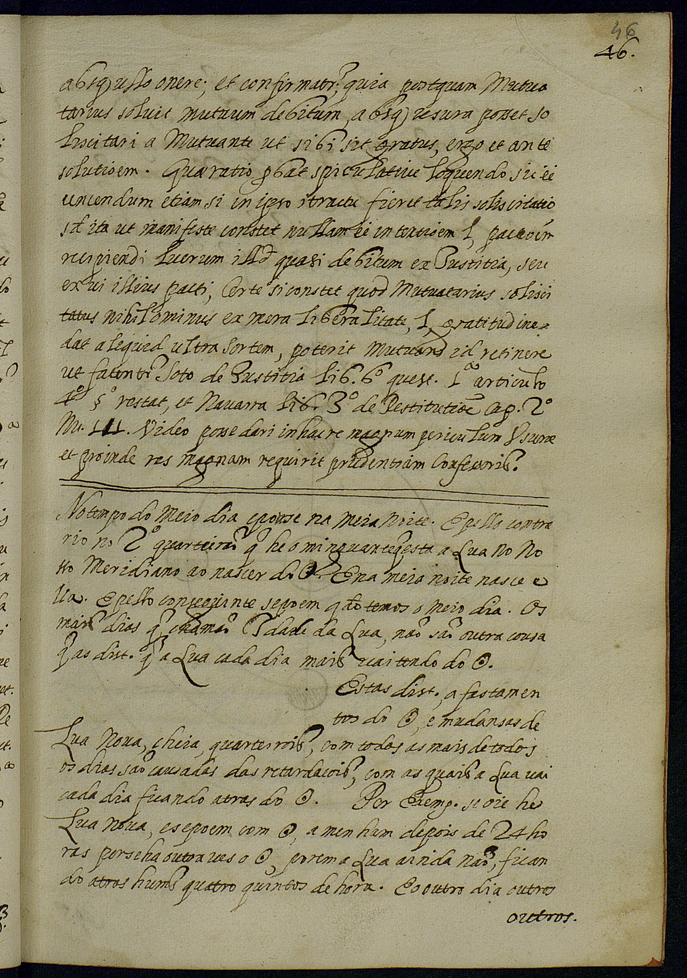 46
46.
absq) ullo onere; et confirmatr, quia postquam Mutua
tarius soluit mutuum debitum, absq) usura potest so
licitari a Mutuante ut sibi sit gratus, ergo et ante
solutioem. Quæ ratio, speculatiue loquendo
uncendum etiam si in ipso fieret talis solicitatio
sit ita ut manifeste constet nullam intentioem l,
recipiendi lucrum illd quasi debitum ex Justitia, seu
ex ui illius pacti; Certe si constet quod Mutuatarius solici
tatus nihilominus ex mera liberalitate, l, gratitudine
dat aliquid ultra sortem, poterit Mutuans id retinere
ut Soto de Justitia lib. 6º quest. 1ª articulo
et Nauarra lib. 3º de Restitutioe Cap. 2º
Nu. Video posse dari in hac re magnum periculum Usuræ
et proinde res magnam requirit prudentiam Confessoris.
No tempo do Meio dia epoense na Meia Noite. E pello contra
rio no 2º quarteirão q he o minguante, esta a Lua no No
sso Meridiano ao nascer do ʘ. E na meia noite nasce e
lla. E pello conseguinte se poem o meio dia. Os
mais dias q chamão Idade da Lua, não são outra cousa
q as dist. q a Lua cada dia mais uai tendo do ʘ.
Estas dist., afastamen
tos do ʘ, e mudansas de
Lua Noua, cheia, quarteirois, com todos as mais de todos
os dias são causadas das retardacois, com as quais a Lua uai
cada dia ficando atras do ʘ. Por Exemp. se oie he
Lua Noua, e se poem com ʘ, a menham depois de 24 ho
ras o ʘ, porem a Lua ainda não, fican
do atras huns quatro quintos de hora. E o outro dia outros
outros.